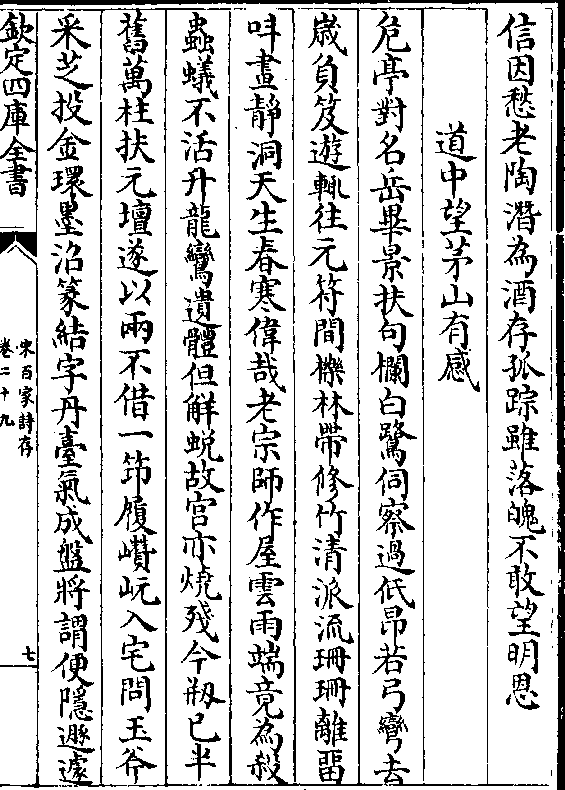 信因愁老陶潛為酒存孤踪雖落魄不敢望明恩
道中望茅山有感
危亭對名岳畢景扶句欄白鷺伺察過低昂若弓彎去
歲負笈遊輒往元符間櫟林帶修竹清派流珊珊離畱
呌晝靜洞天生春寒偉哉老宗師作屋雲雨端竟為殺
蟲蟻不活升龍鸞遺體但解蛻故宫亦燒殘今剏已半
舊萬柱扶元壇遂以兩不借一笻履巑岏入宅問玉斧
采芝投金環墨沼篆結字丹臺氣成盤將謂便隱遯遽
欽定四庫全書
宋百家詩存
卷二十九
七